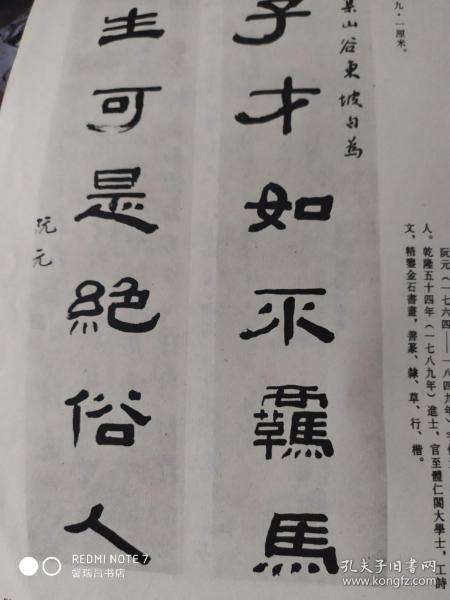 九·一厘米。
阮元（一七六四——一八四九年）
人。乾隆五十四年（一七八九年）進士，官至體仁閣大學士，工詩
文，精鑒金石書畫，善篆、隸、草、行、楷。
集山谷東坡句為
子才如不羈馬
主可是絕俗人
阮元
REDMI NOTE 7
馨瑞谷书店
孔夫子旧书网